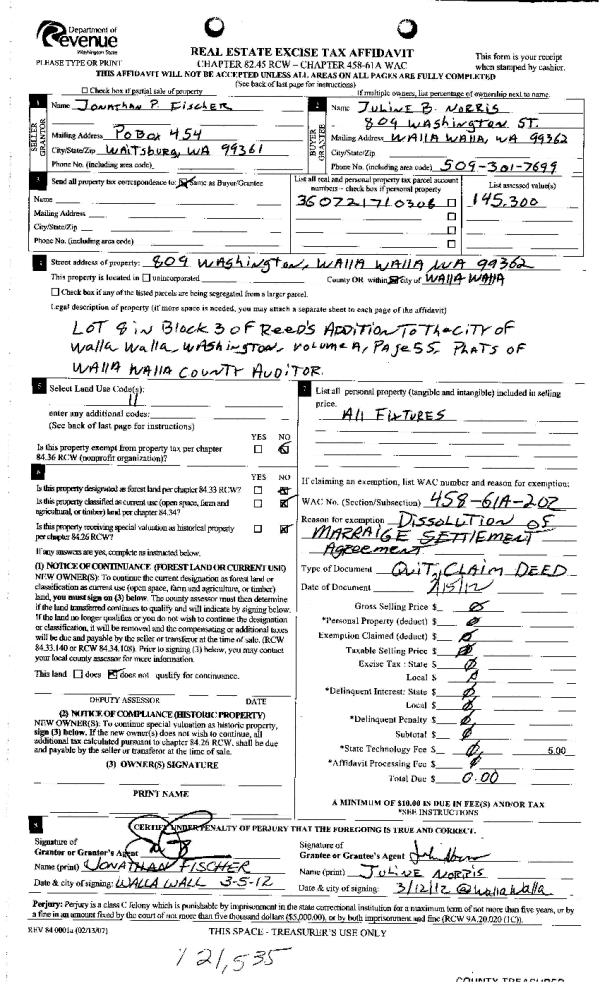 Department of
Revenue
Washington State
PLEASE TYPE OR PRINT
REAL ESTATE EXCISE TAX AFFIDAVIT
CHAPTER 82.45 RCW – CHAPTER 458-61A WAC
This form is your receipt
when stamped by cashier.
THIS AFFIDAVIT WILL NOT BE ACCEPTED UNLESS ALL AREAS ON ALL PAGES ARE FULLY COMPLETED
(See back of last page for instructions)
☐ Check box if partial sale of property
If multiple owners, list percentage of ownership next to name.
1 Name Jonathan P. Fischer
SELLER GRANTOR
Mailing Address PO Box 454
City/State/Zip Waitsburg, WA 99361
Phone No. (including area code)
2 Name Juline B. Norris
BUYER GRANTEE
809 Washington St.
Mailing Address Walla Walla, WA 99362
City/State/Zip
Phone No. (including area code) 509-301-7699
3 Send all property tax correspondence to: ☒ Same as Buyer/Grantee
Name
Mailing Address
City/State/Zip
Phone No. (including area code)
List all real and personal property tax parcel account
numbers – check box if personal property
360721710308 ☐
☐
☐
☐
List assessed value(s)
145,300
4 Street address of property: 809 Washington, Walla Walla WA 99362
This property is located in ☐ unincorporated County OR within ☒ city of Walla Walla
☐ Check box if any of the listed parcels are being segregated from a larger parcel.
Legal description of property (if more space is needed, you may attach a separate sheet to each page of the affidavit)
Lot 8 in Block 3 of Reed's Addition to the City of
Walla Walla, Washington, Volume A, Page 55, Plats of
Walla Walla County Auditor.
5 Select Land Use Code(s):
11
enter any additional codes:
(See back of last page for instructions)
YES NO
Is this property exempt from property tax per chapter
84.36 RCW (nonprofit organization)? ☐ ☒
6
YES NO
Is this property designated as forest land per chapter 84.33 RCW? ☐ ☒
Is this property classified as current use (open space, farm and
agricultural, or timber) land per chapter 84.34? ☐ ☒
Is this property receiving special valuation as historical property
per chapter 84.26 RCW? ☐ ☒
If any answers are yes, complete as instructed below.
(1) NOTICE OF CONTINUANCE (FOREST LAND OR CURRENT USE)
NEW OWNER(S): To continue the current designation as forest land or
classification as current use (open space, farm and agriculture, or timber)
land, you must sign on (3) below. The county assessor must then determine
if the land transferred continues to qualify and will indicate by signing below.
If the land no longer qualifies or you do not wish to continue the designation
or classification, it will be removed and the compensating or additional taxes
will be due and payable by the seller or transferor at the time of sale. (RCW
84.33.140 or RCW 84.34.108). Prior to signing (3) below, you may contact
your local county assessor for more information.
This land ☐ does ☒ does not qualify for continuance.
DEPUTY ASSESSOR DATE
(2) NOTICE OF COMPLIANCE (HISTORIC PROPERTY)
NEW OWNER(S): To continue special valuation as historic property,
sign (3) below. If the new owner(s) does not wish to continue, all
additional tax calculated pursuant to chapter 84.26 RCW, shall be due
and payable by the seller or transferor at the time of sale.
(3) OWNER(S) SIGNATURE
PRINT NAME
7 List all personal property (tangible and intangible) included in selling
price.
All Fixtures
If claiming an exemption, list WAC number and reason for exemption:
WAC No. (Section/Subsection) 458-61A-202
Reason for exemption Dissolution of
Marraige Settlement
Agreement
Type of Document Quit Claim Deed
Date of Document 2/15/12
Gross Selling Price $ Ø
*Personal Property (deduct) $ Ø
Exemption Claimed (deduct) $ Ø
Taxable Selling Price $ Ø
Excise Tax : State $ Ø
Local $ Ø
*Delinquent Interest: State $ Ø
Local $ Ø
*Delinquent Penalty $ Ø
Subtotal $ Ø
*State Technology Fee $ Ø 5.00
*Affidavit Processing Fee $ Ø
Total Due $ 0.00
A MINIMUM OF $10.00 IS DUE IN FEE(S) AND/OR TAX
*SEE INSTRUCTIONS
8 I CERTIFY UNDER PENALTY OF PERJURY THAT THE FOREGOING IS TRUE AND CORRECT.
Signature of
Grantor or Grantor's Agent
Name (print) Jonathan Fischer
Date & city of signing: Walla Wall 3-5-12
Signature of
Grantee or Grantee's Agent
Name (print) Juline Norris
Date & city of signing: 3/12/12 @ Walla Walla
Perjury: Perjury is a class C felony which is punishable by imprisonment in the state correctional institution for a maximum term of not more than five years, or by
a fine in an amount fixed by the court of not more than five thousand dollars ($5,000.00), or by both imprisonment and fine (RCW 9A.20.020 (1C)).
REV 84 0001a (02/13/07)
THIS SPACE - TREASURER'S USE ONLY
121,535
COUNTY TREASURER